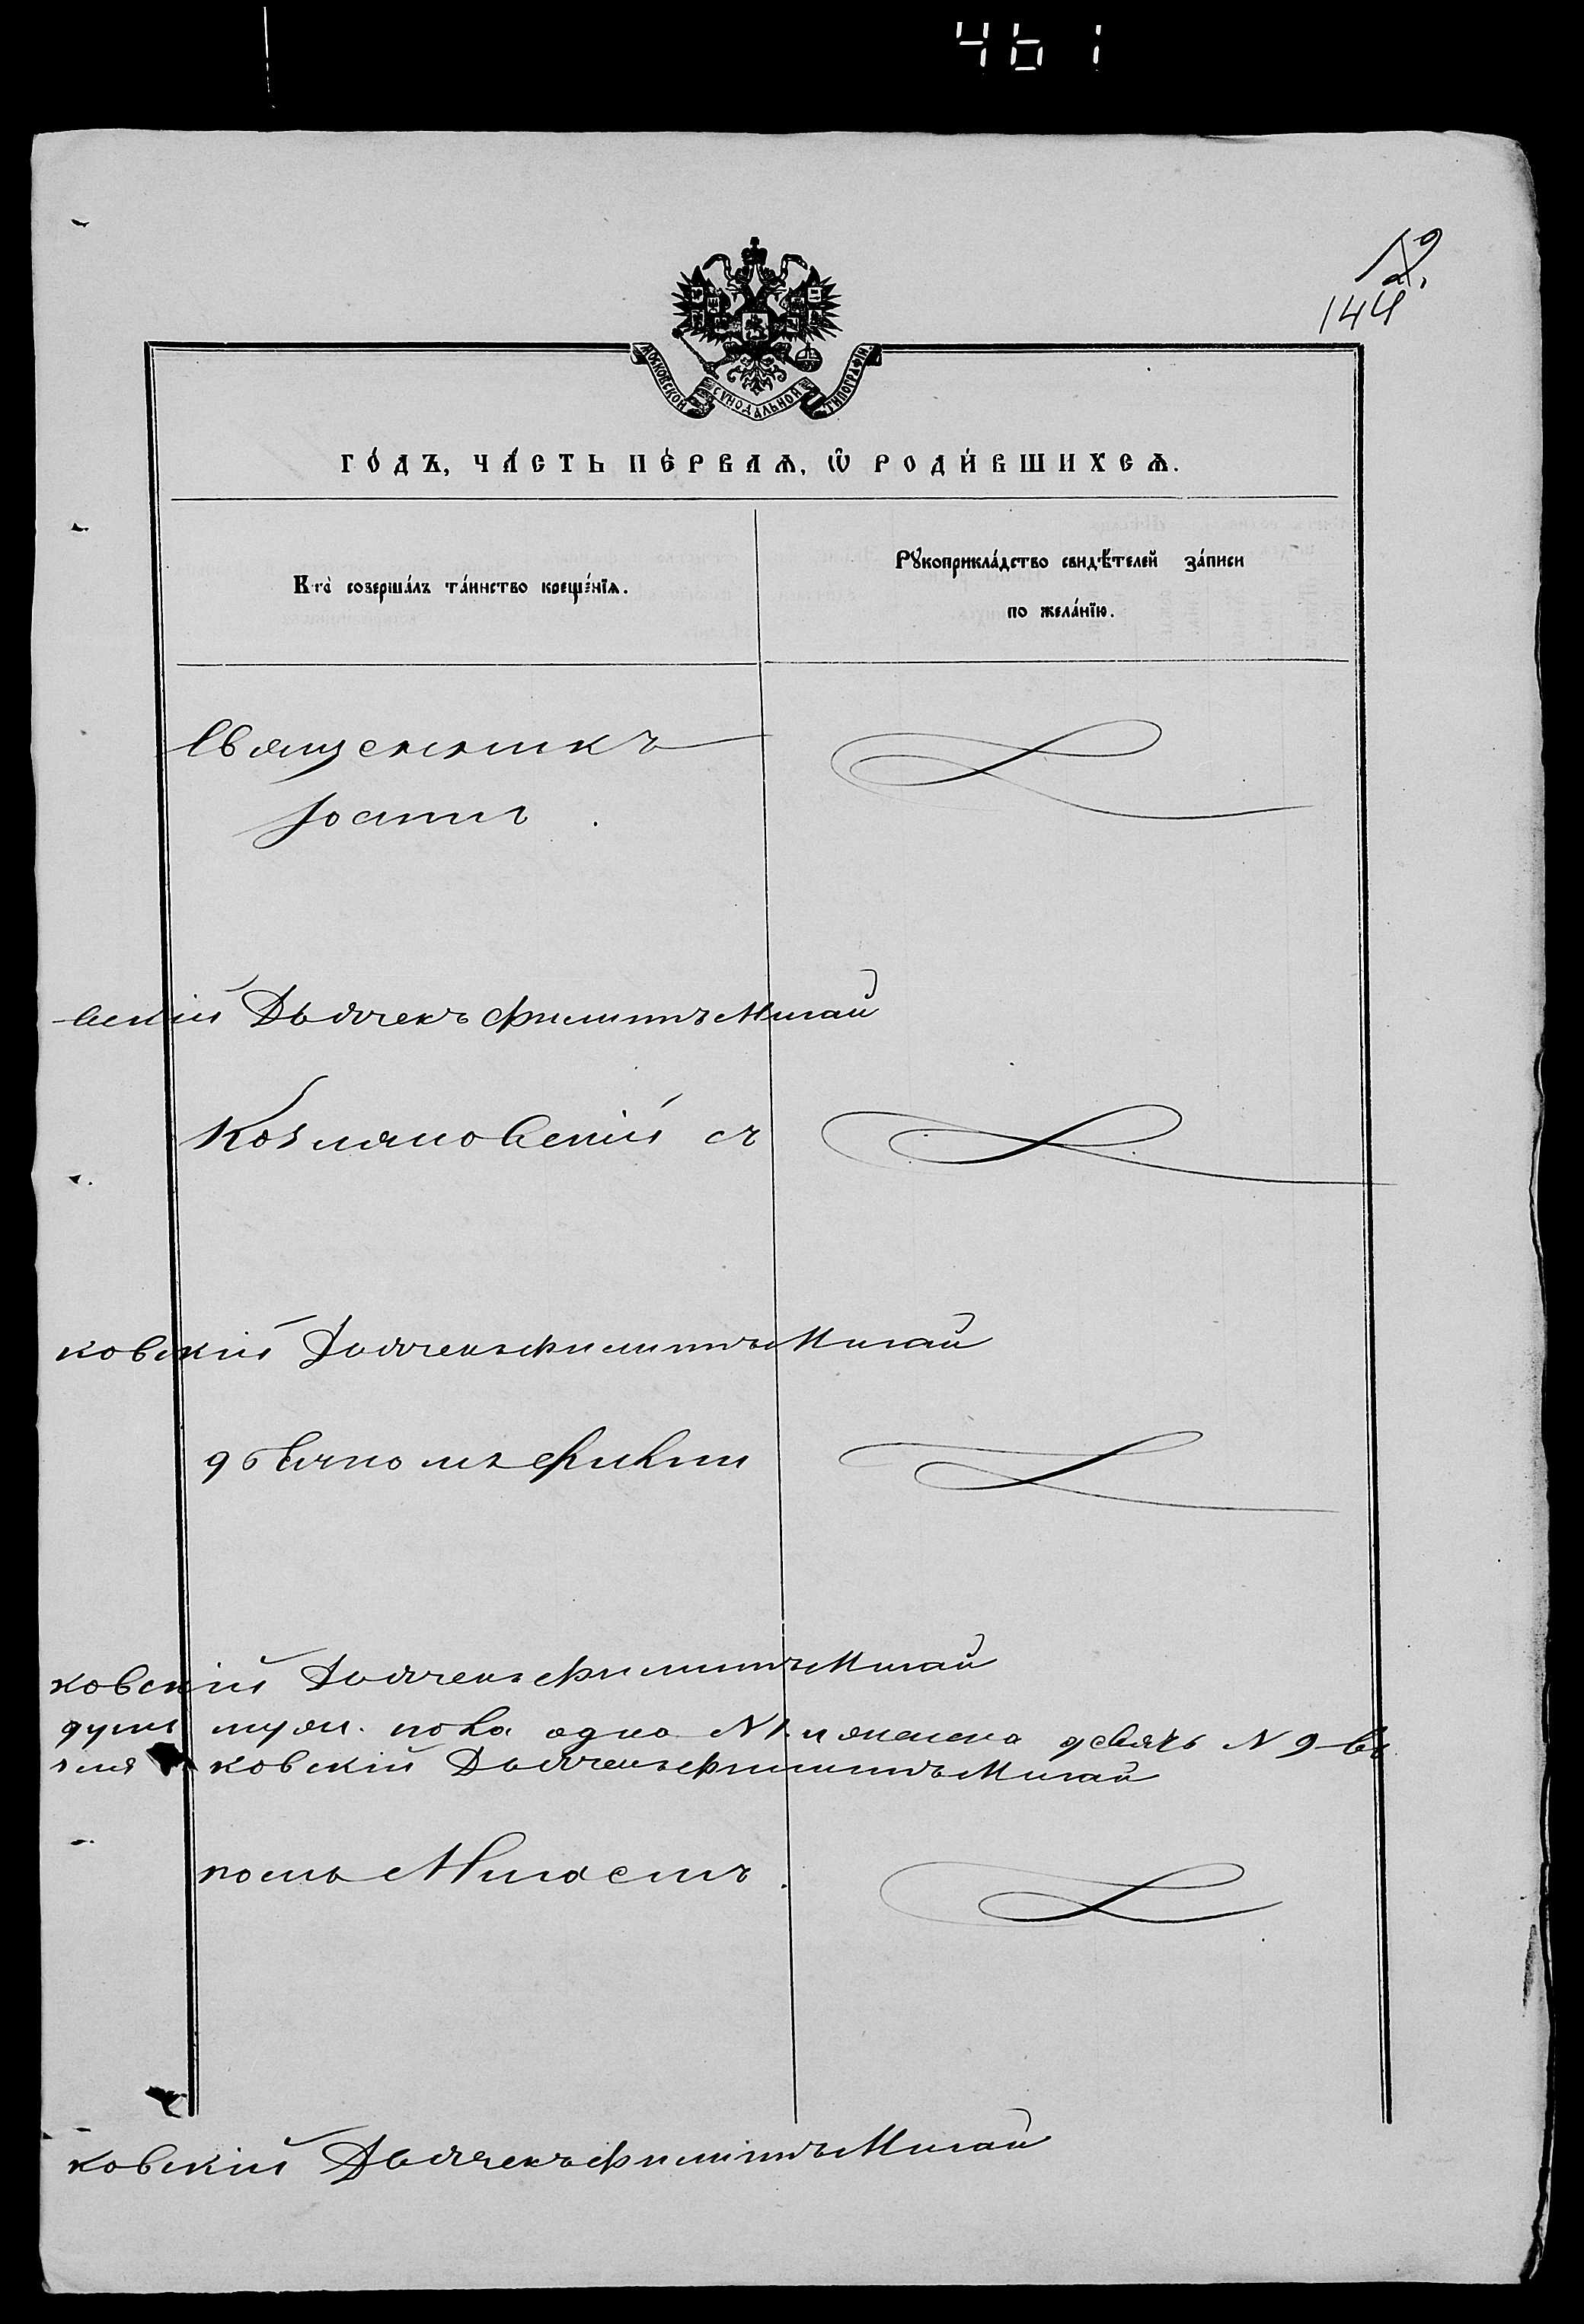 461
144
МОСКОВСКОЙ СѴНОДАЛЬНОЙ ТИПОГРАФІИ.
ГО́ДЪ, ЧА́СТЬ ПЕ́РВАѦ, Ѡ҆ РОДИ́ВШИХСѦ.
Кто̀ соверша́лъ та́инство креще́нїѧ.
Рꙋкоприкла́дство свидѣ́телей за́писи
по жела́нїю.
Священникъ
Іоаннъ
вскій Дьячекъ Филиппъ Мигай
Козляновскій съ
ковскій Дьячекъ Филиппъ Мигай
дьячкомъ Филип
ковскій Дьячекъ Филиппъ Мигай
муж. пола одно N 1. и женска девять N 9
ковскій Дьячекъ Филиппъ Мигай
помъ Мигаемъ.
ковскій Дьячекъ Филиппъ Мигай